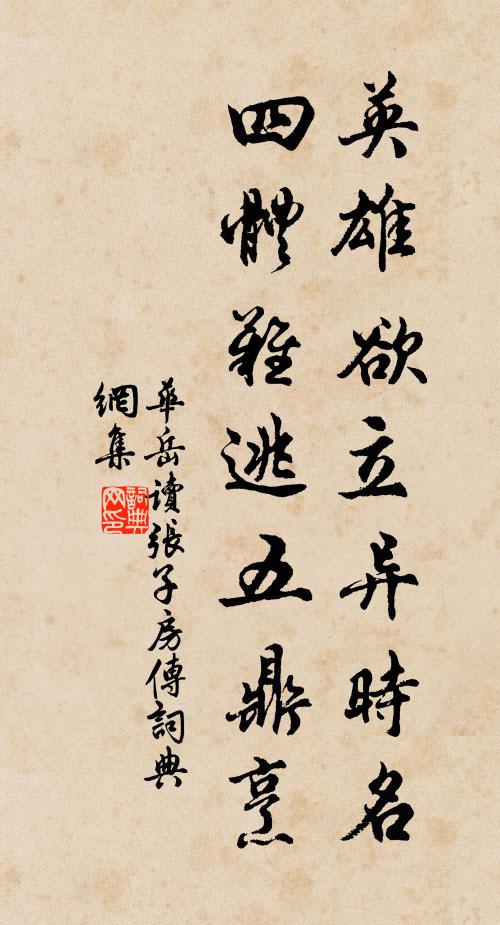 英雄欲立异時名
四體難逃五鼎烹
華岳讀張子房傳詞典
網集
詞典
网印